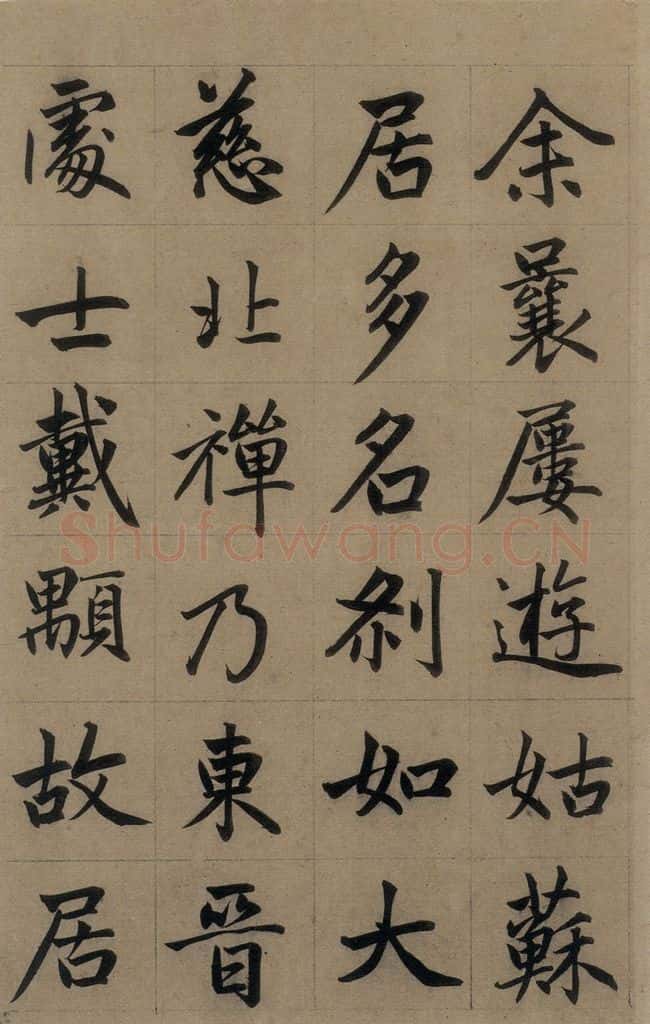 余曩屢遊姑蘇
居多名刹如大
慈北禪乃東晉
處士戴顒故居
Shufawang.CN